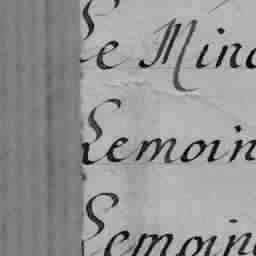 Le Mina
Lemoin
Lemoine